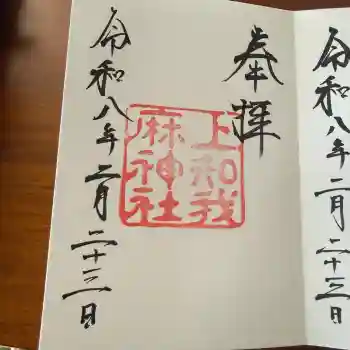 奉拝
上和我
麻神社
令和八年二月二十三日
令和八年二月二十三日